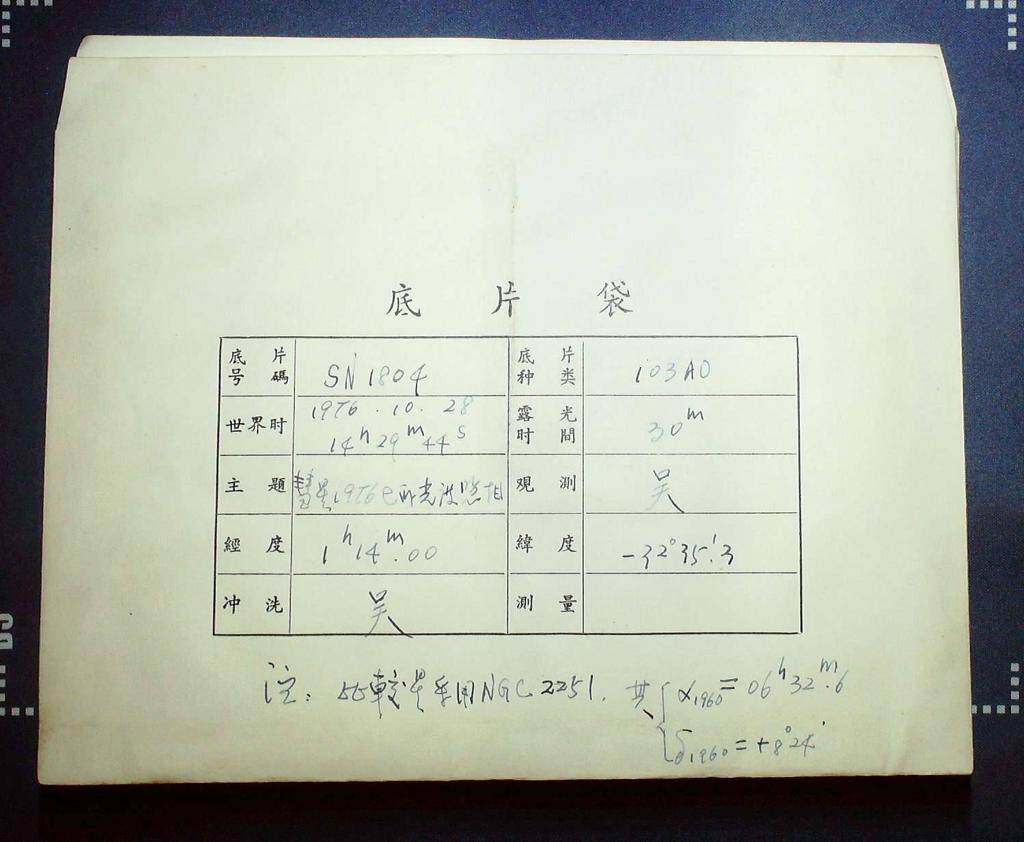 底 片 袋
底片号碼 SN 1804 底片种类 103AO
世界时 1976.10.28 14h29m44s 露光时間 30m
主題 彗星1976e 照相 观測 吴
經度 1h14m.00 緯度 -32°35'.3
冲洗 吴 測量
注: 比較星采用NGC 2251. 其 α1960 = 06h32m.6
δ1960 = +8°24'